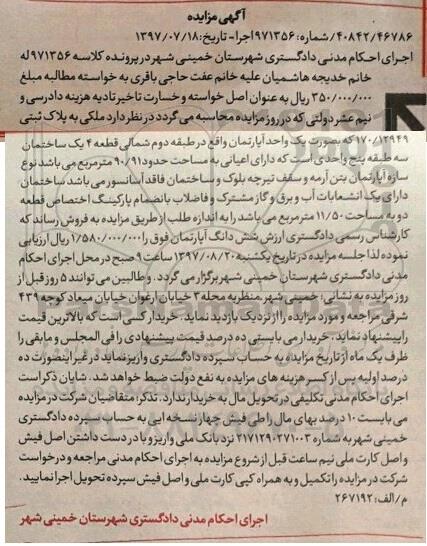 آگهی مزایده
۴۰۸۴۲/۴۶۷۸۶/شماره: ۹۷۱۳۵۶اجرا- تاریخ: ۱۳۹۷/۰۷/۱۸
اجرای احکام مدنی دادگستری شهرستان خمینی شهر در پرونده کلاسه ۹۷۱۳۵۶ له
خانم خدیجه هاشمیان علیه خانم عفت حاجی باقری به خواسته مطالبه مبلغ
۳۵۰/۰۰۰/۰۰۰ ریال به عنوان اصل خواسته و خسارت تاخیر تادیه هزینه دادرسی و
نیم عشر دولتی که در روز مزایده محاسبه می گردد در نظر دارد ملکی به پلاک ثبتی
۱۷۰/۱۲۹۴۹ که بصورت یک واحد آپارتمان واقع در طبقه دوم شمالی قطعه ۴ یک ساختمان
سه طبقه پنج واحدی است که دارای اعیانی به مساحت حدود ۹۰/۹۱ مترمربع می باشد نوع
سازه آپارتمان بتن آرمه و سقف تیرچه بلوک و ساختمان فاقد آسانسور می باشد ساختمان
دارای یک انشعابات آب و برق و گاز مشترک و فاضلاب بانضمام پارکینگ اختصاص قطعه
دو به مساحت ۱۱/۵۰ متر مربع می باشد را به اندازه طلب از طریق مزایده به فروش رساند که
کارشناس رسمی دادگستری ارزش شش دانگ آپارتمان فوق را ۱/۵۸۰/۰۰۰/۰۰۰ ریال ارزیابی
نموده لذا جلسه مزایده در تاریخ یکشنبه ۱۳۹۷/۰۸/۲۰ ساعت ۹ صبح در محل اجرای احکام
مدنی دادگستری شهرستان خمینی شهر برگزار می گردد. و طالبین می توانند ۵ روز قبل از
روز مزایده به نشانی: خمینی شهر منظریه محله ۳ خیابان ارغوان خیابان میعاد کوچه ۴۳۹
شرقی مراجعه و مورد مزایده را از نزدیک بازدید نماید، خریدار کسی است که بالاترین قیمت
را پیشنهاد نماید، خریدار می بایستی ده درصد قیمت پیشنهادی را فی المجلس و مابقی را
ظرف یک ماه از تاریخ مزایده به حساب سپرده دادگستری واریز نماید در غیر اینصورت ده
درصد اولیه پس از کسر هزینه های مزایده به نفع دولت ضبط خواهد شد. شایان ذکر است
اجرای احکام مدنی تکلیفی در تحویل مال به خریدار ندارد. تذکر: متقاضیان شرکت در مزایده
می بایست ۱۰ درصد بهای مال را طی فیش چهار نسخه ایی به حساب سپرده دادگستری
خمینی شهر به شماره ۲۱۷۱۲۹۰۲۷۱۰۰۳ نزد بانک ملی واریز و با در دست داشتن اصل فیش
و اصل کارت ملی نیم ساعت قبل از شروع مزایده به اجرای احکام مدنی مراجعه و درخواست
شرکت در مزایده را تکمیل و به همراه کپی کارت ملی و اصل فیش سپرده تحویل اجرا نمایید.
م/الف: ۲۶۷۱۹۲
اجرای احکام مدنی دادگستری شهرستان خمینی شهر